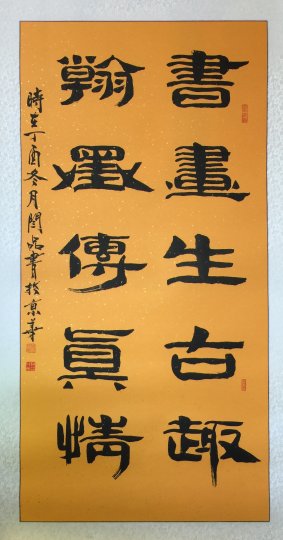 書畫生古趣
翰墨傳眞情
時在丁酉冬月閆兆書於京華